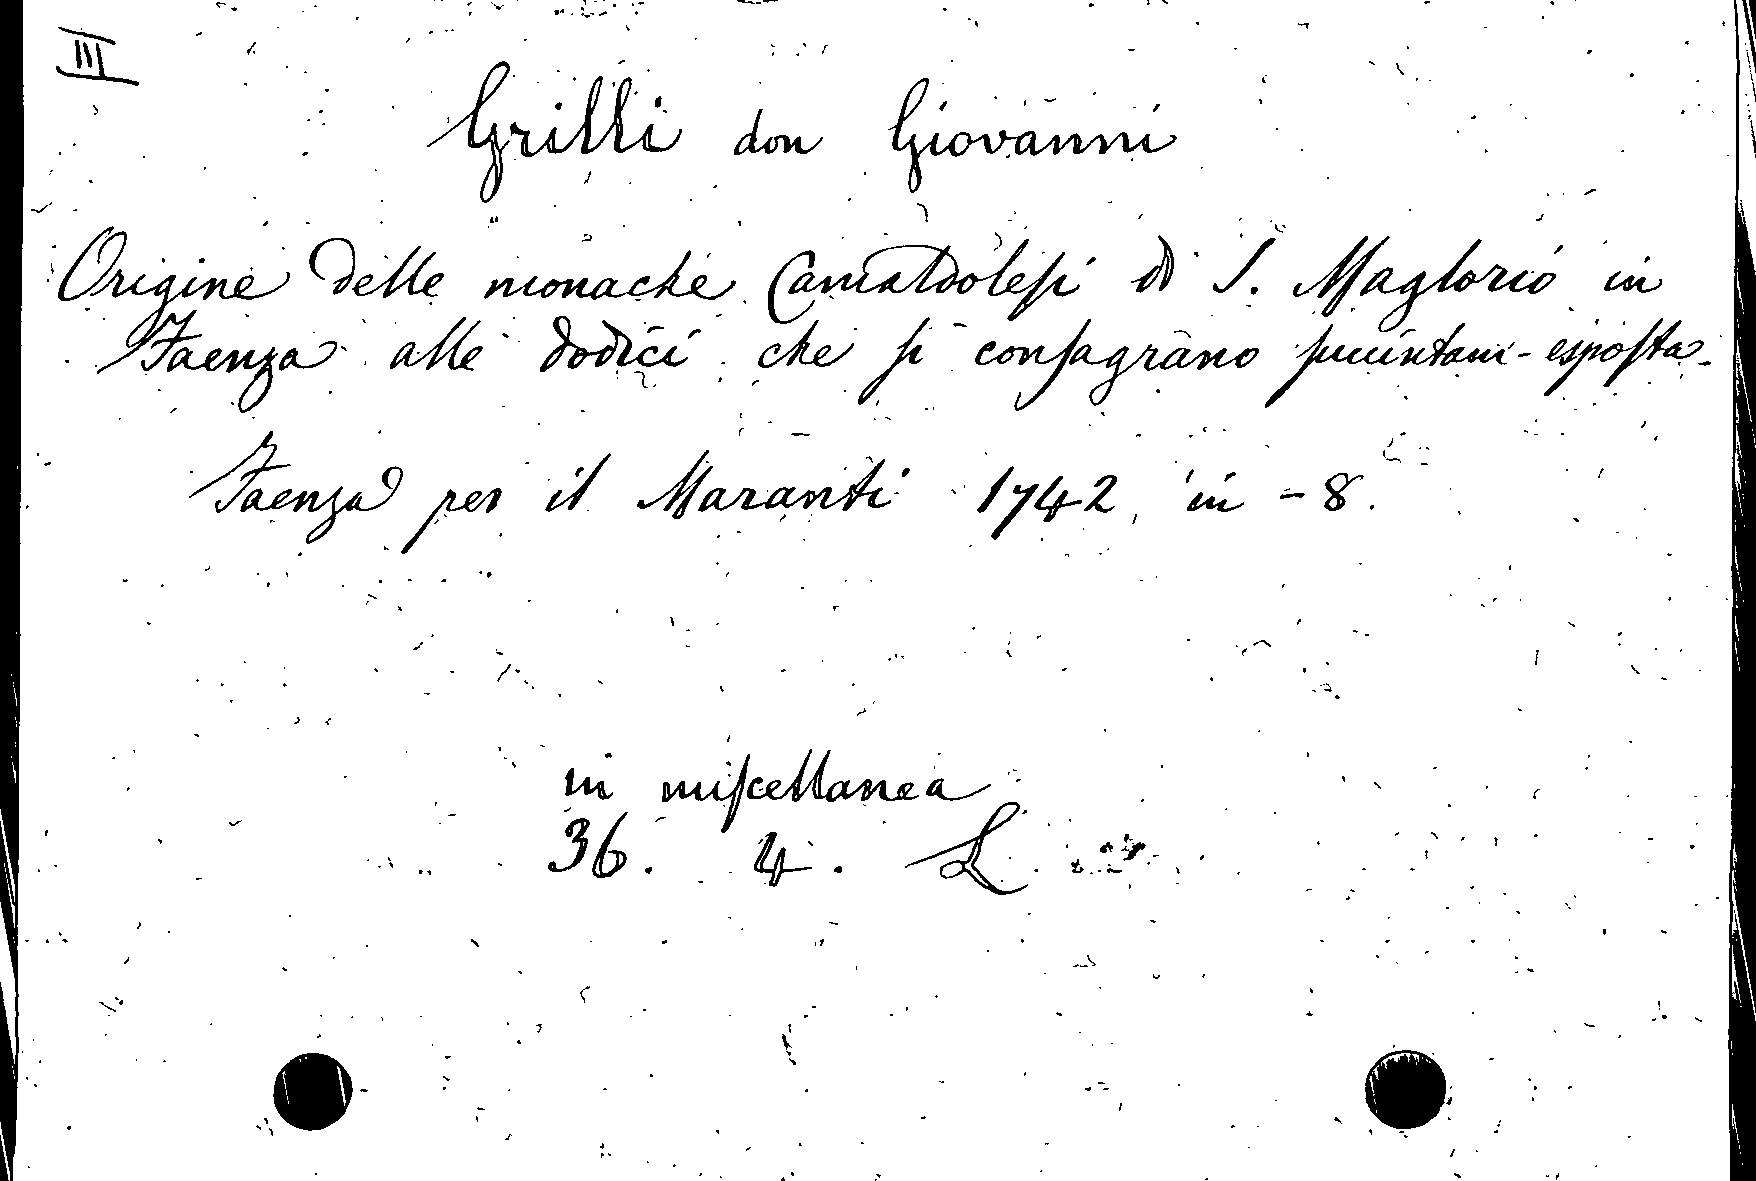 III
Grilli don Giovanni
Origine delle monache Camaldolesi di S. Maglorio in
Faenza alle dodici che si consagrano - esposta -
Faenza per il Maranti 1742 in - 8.
in miscellanea
36. 4. L